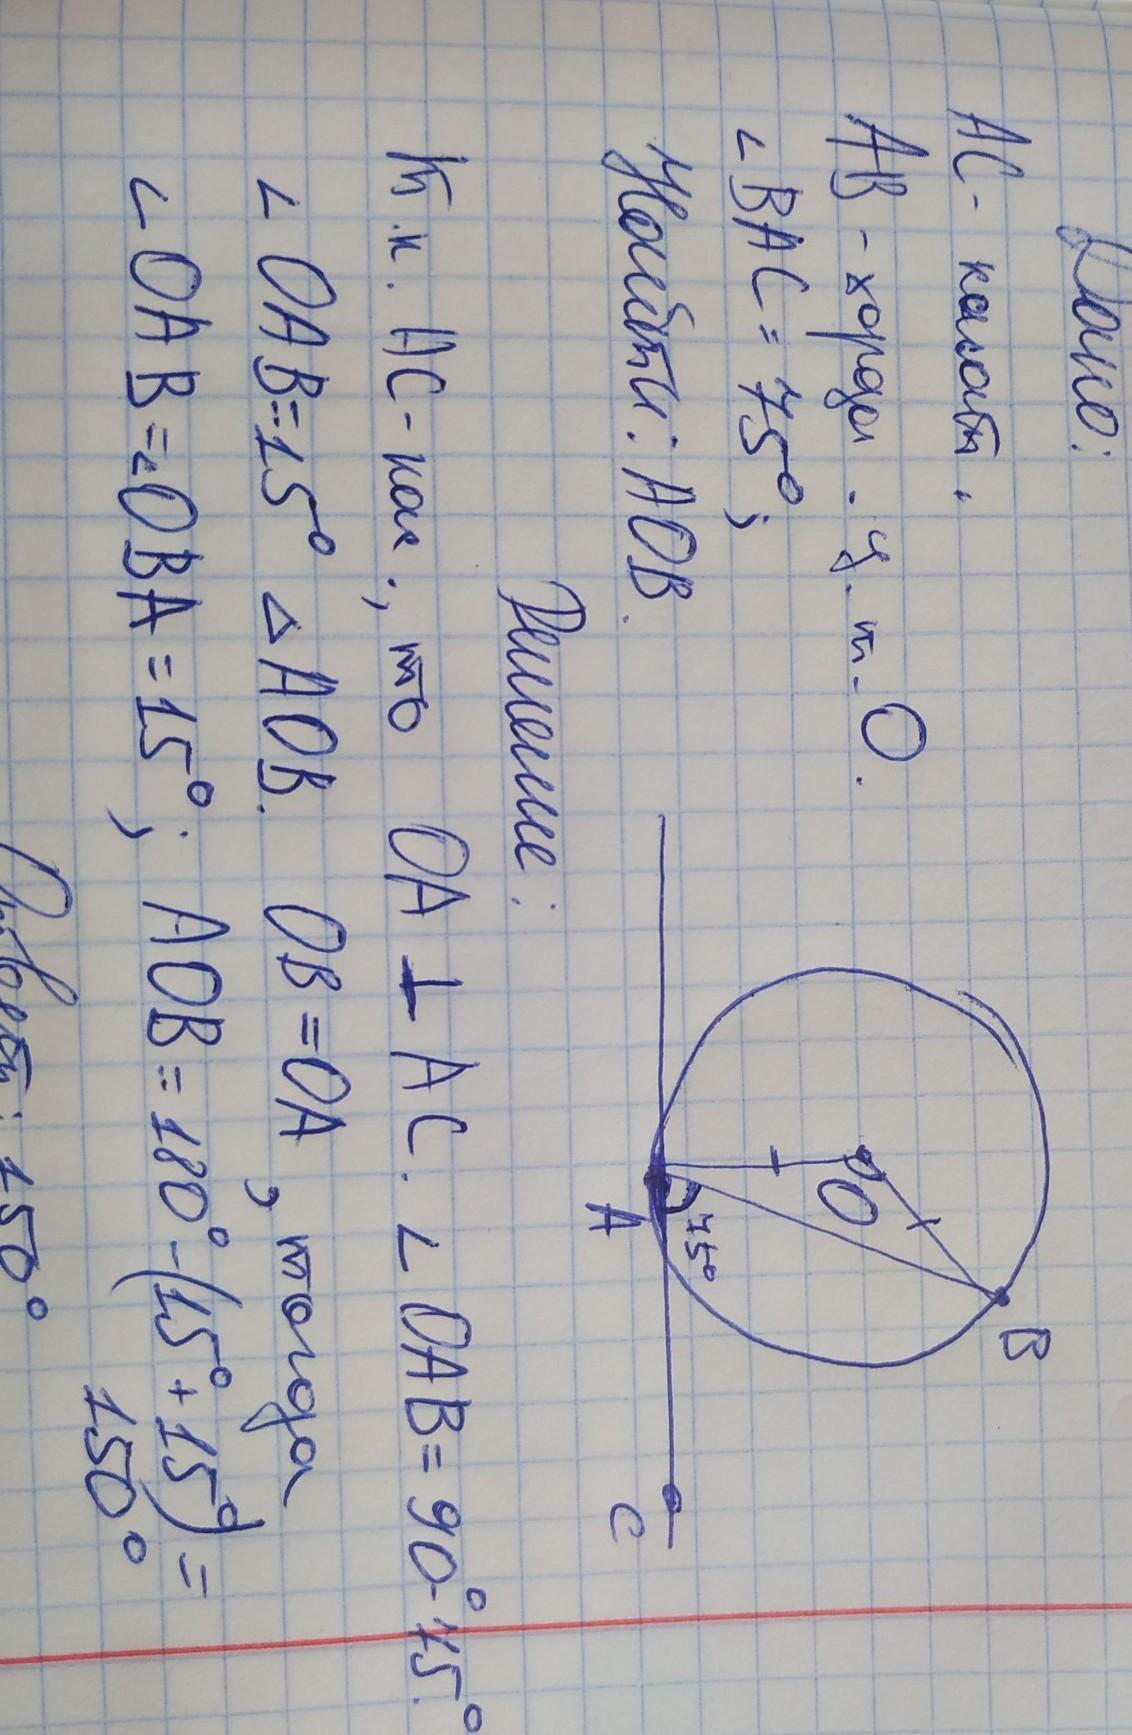 Дано:
AC - касат,
AB - хорда. ц. т. O.
∠BAC = 75°;
Найти: AOB.
B
O
75°
A
C
Решение:
т.к. AC - кас., то OA ⊥ AC. ∠OAB = 90°-75°.
∠OAB=15° △AOB. OB = OA, тогда
∠OAB=∠OBA=15°; AOB = 180°-(15°+15°) =
150°
Ответ: 150°